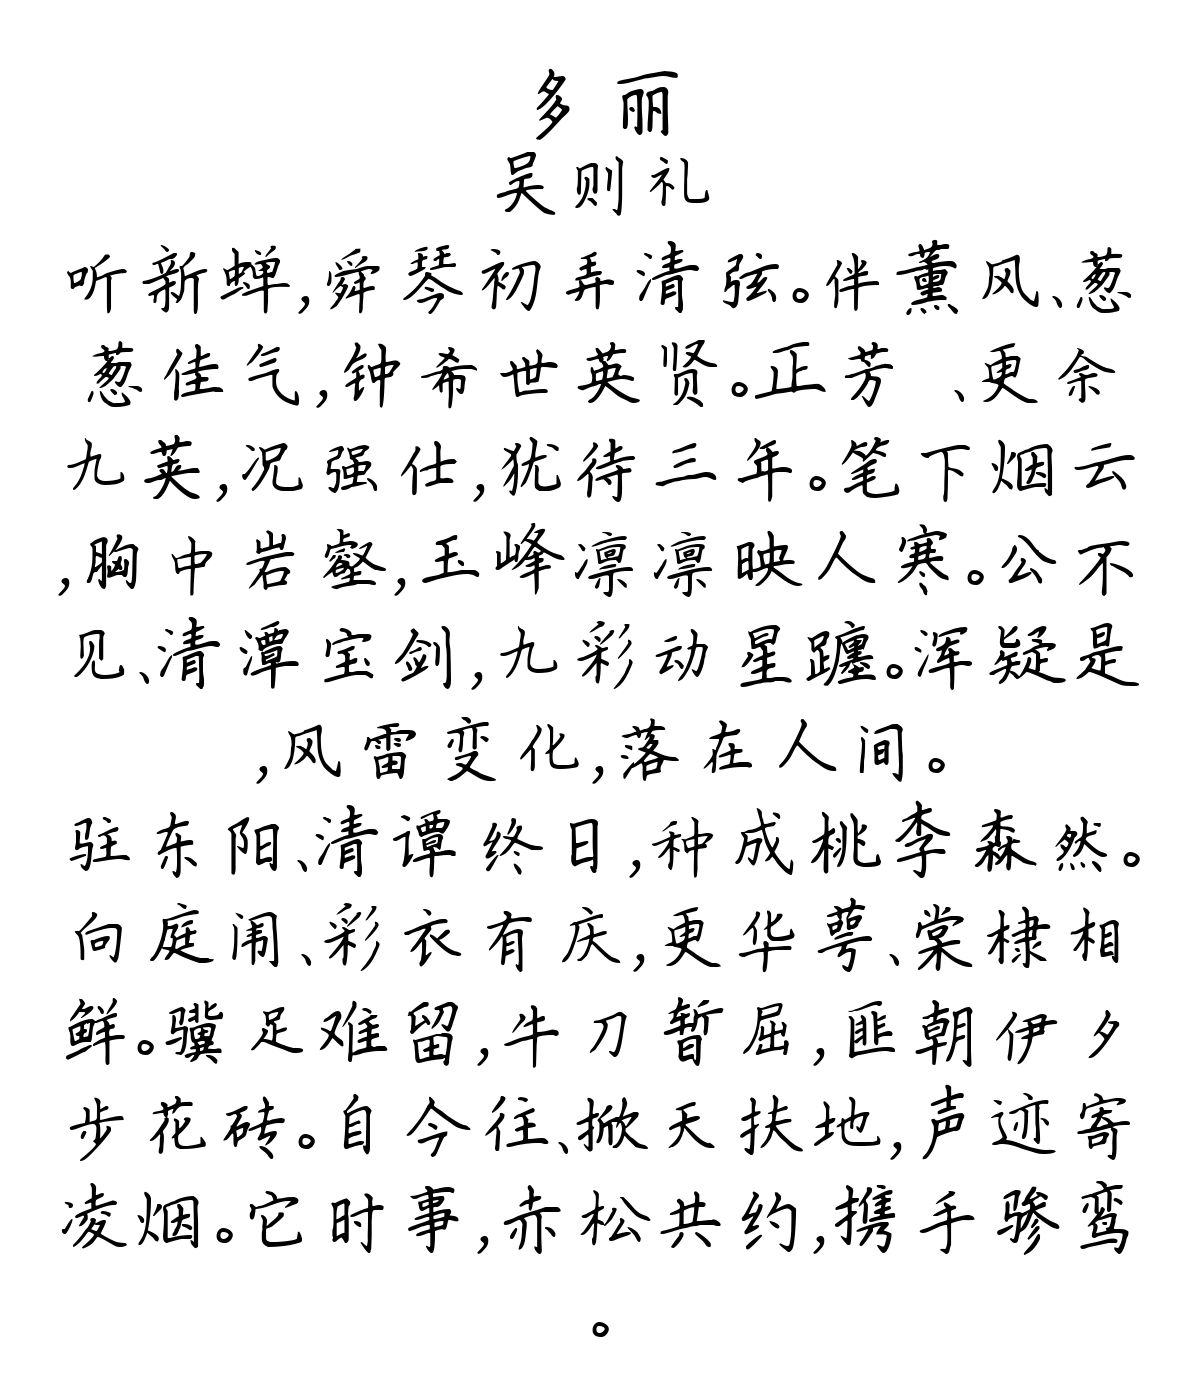 多丽
吴则礼
听新蝉,舜琴初弄清弦。伴薰风、葱
葱佳气,钟希世英贤。正芳 、更余
九荚,况强仕,犹待三年。笔下烟云
,胸中岩壑,玉峰凛凛映人寒。公不
见、清潭宝剑,九彩动星躔。浑疑是
,风雷变化,落在人间。
驻东阳、清谭终日,种成桃李森然。
向庭闱、彩衣有庆,更华萼、棠棣相
鲜。骥足难留,牛刀暂屈,匪朝伊夕
步花砖。自今往、掀天扶地,声迹寄
凌烟。它时事,赤松共约,携手骖鸾
。